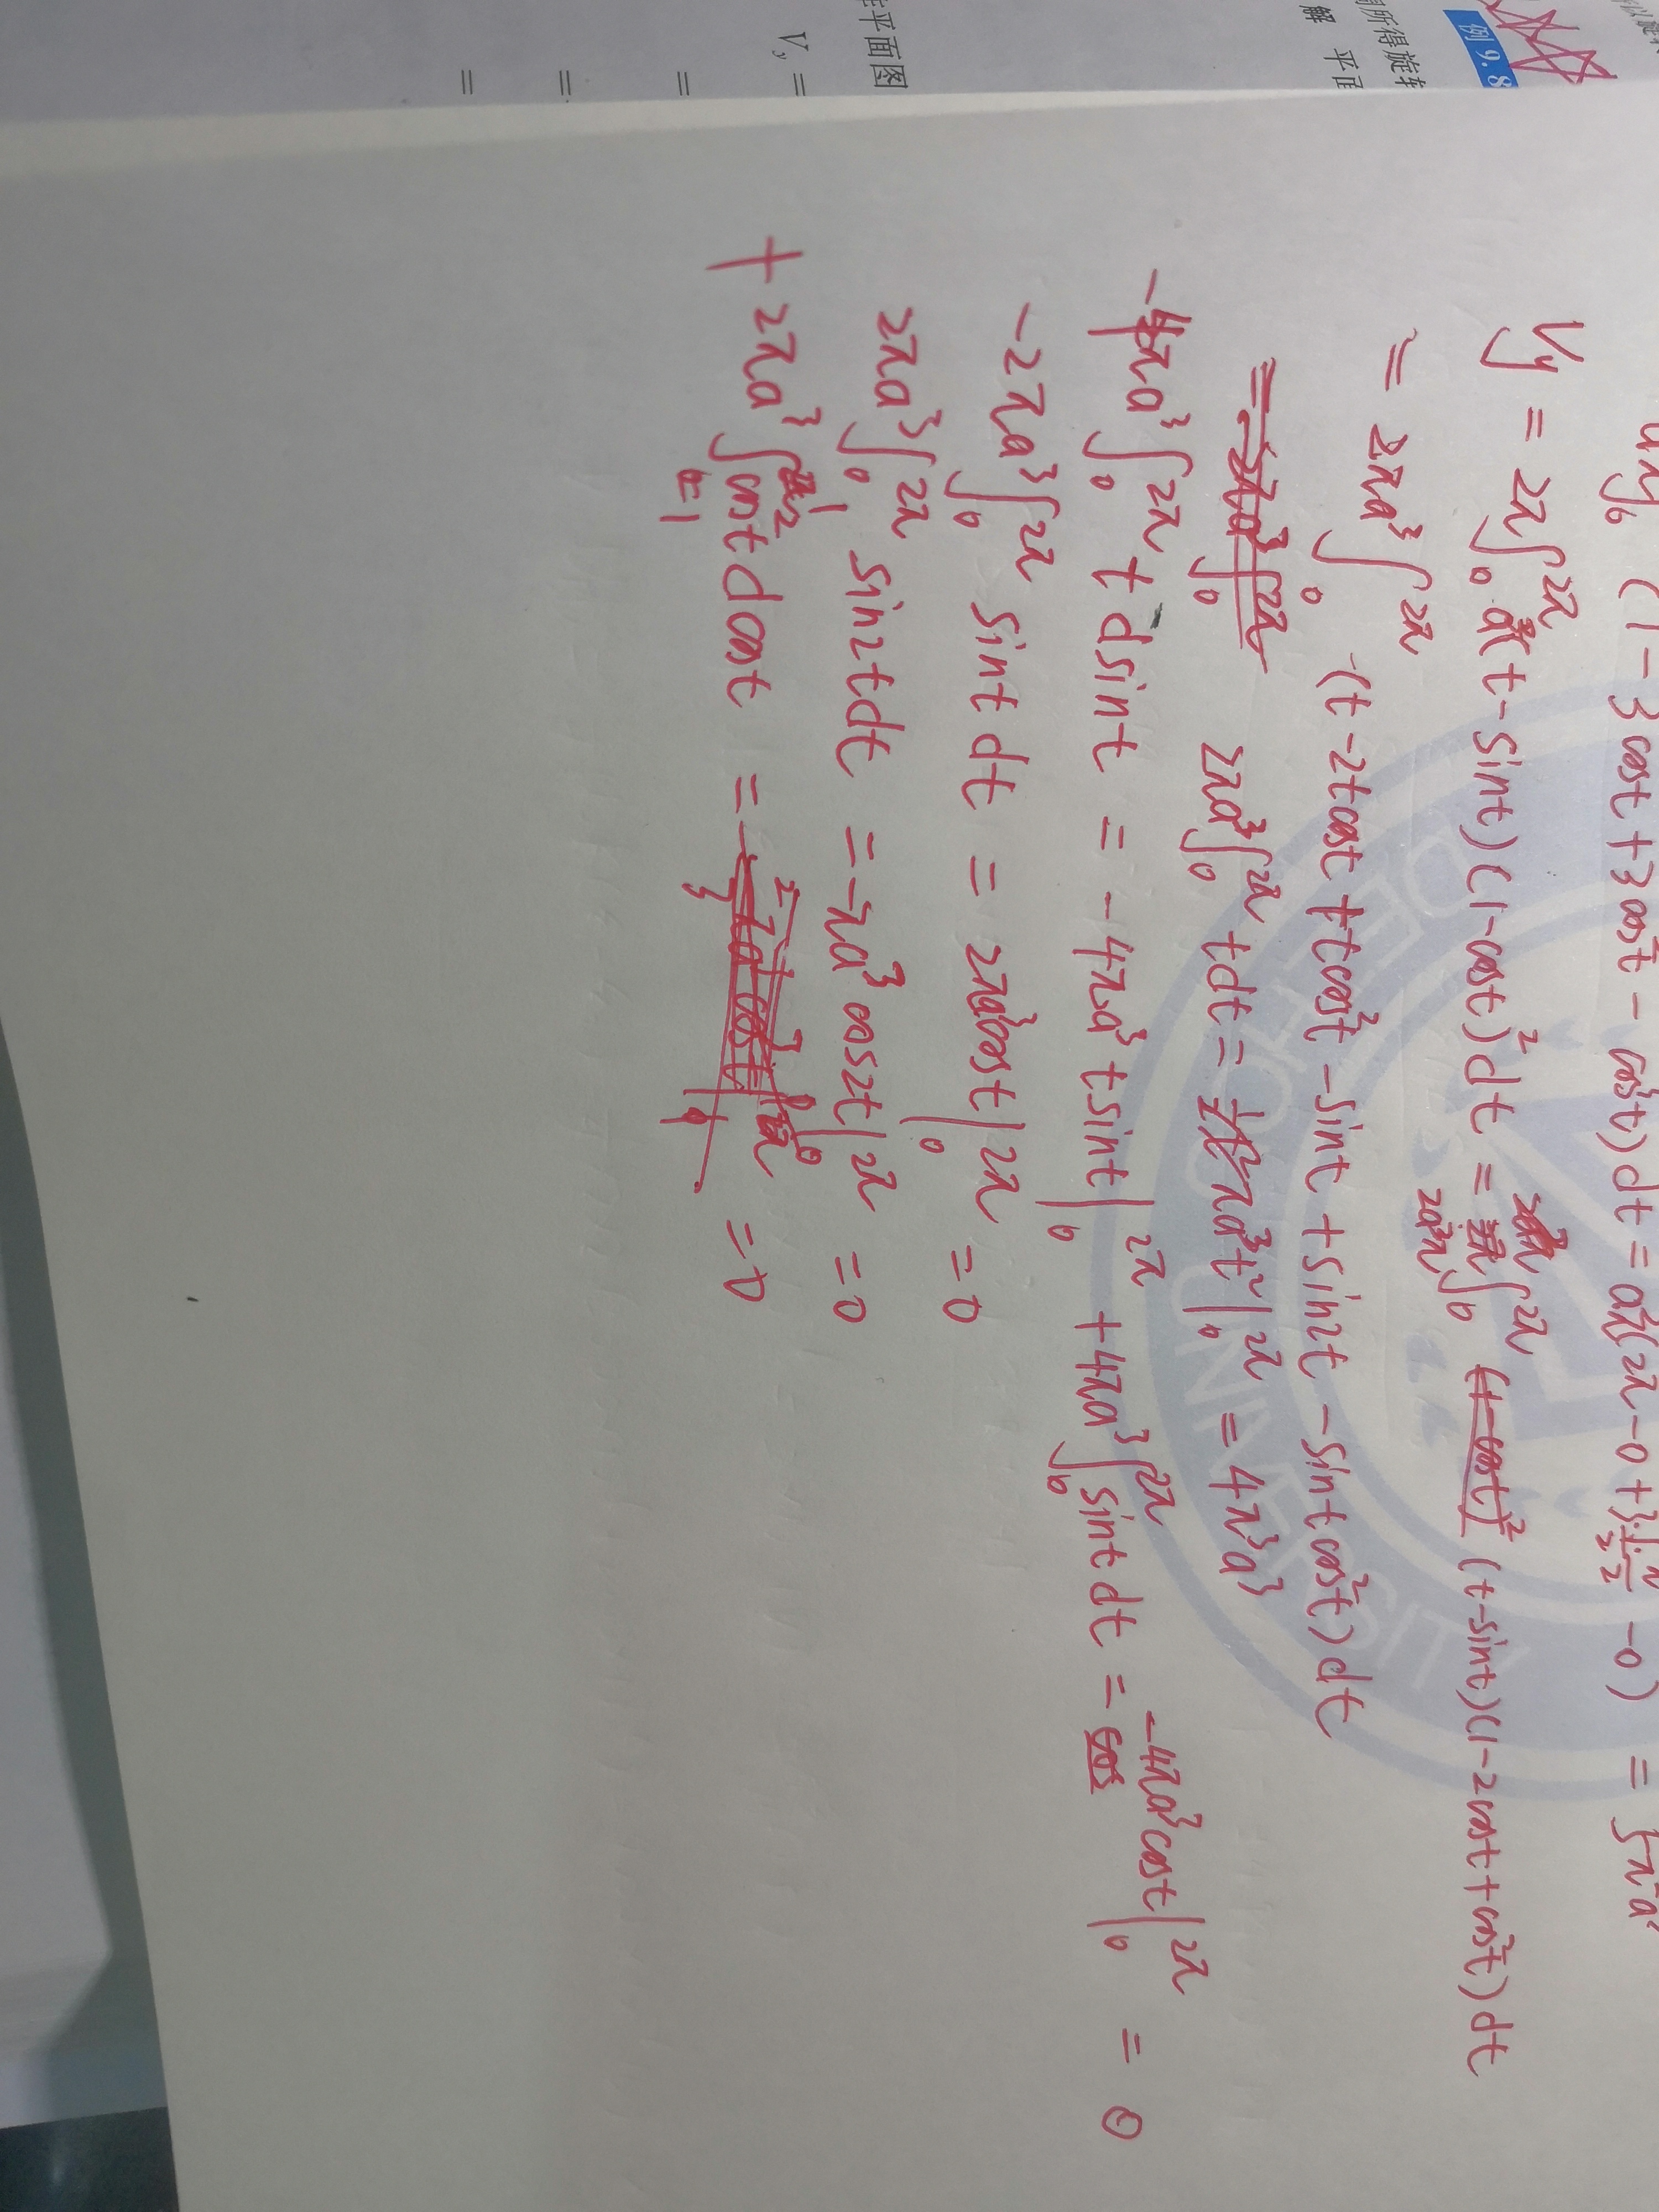 例 9.8
解 平面
平面图
V_y =
=
=
=
(1-3cost+3cos²t-cos³t)dt = a³π(2π-0+3·\frac{1}{2}·\frac{π}{2}-0) = 5π²a³
V_y = 2π∫₀^{2π} a³(t-sint)(1-cost)²dt = 2a³π∫₀^{2π} (t-sint)(1-2cost+cos²t)dt
= 2πa³∫₀^{2π} (t-2tcost+tcos²t-sint+sin2t-sintcos²t)dt
2πa³∫₀^{2π} tdt = πa³t²|₀^{2π} = 4π³a³
-4πa³∫₀^{2π} tdsint = -4πa³tsint|₀^{2π} +4πa³∫₀^{2π} sintdt = -4πa³cost|₀^{2π} = 0
-2πa³∫₀^{2π} sintdt = 2πa³cost|₀^{2π} = 0
2πa³∫₀^{2π} sin2tdt = -πa³cos2t|₀^{2π} = 0
+ 2πa³∫cos²tdcost = = 0
DEZHOU UNIVERSITY